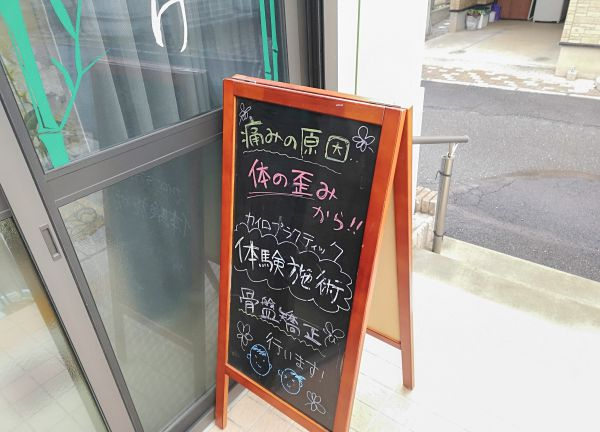 け
痛みの原因
体の歪み
から!!
カイロプラクティック
体験施術
骨盤矯正
行います!